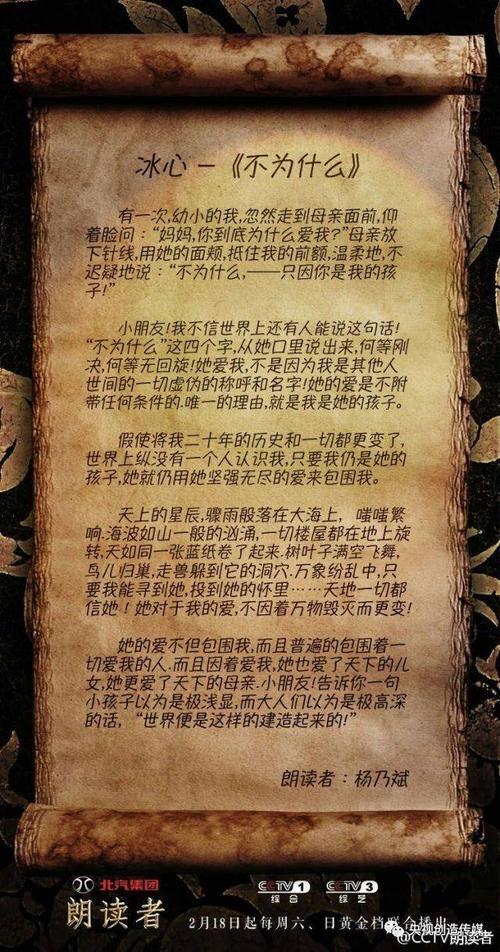 冰心 — 《不为什么》
有一次,幼小的我,忽然走到母亲面前,仰
着脸问：“妈妈,你到底为什么爱我?”母亲放
下针线,用她的面颊,抵住我的前额,温柔地,不
迟疑地说：“不为什么,——只因你是我的孩
子!”
小朋友!我不信世界上还有人能说这句话!
“不为什么”这四个字,从她口里说出来,何等刚
决,何等无回旋!她爱我,不是因为我是其他人
世间的一切虚伪的称呼和名字!她的爱是不附
带任何条件的.唯一的理由,就是我是她的孩子。
假使将我二十年的历史和一切都更变了,
世界上纵没有一个人认识我,只要我仍是她的
孩子,她就仍用她坚强无尽的爱来包围我。
天上的星辰,骤雨般落在大海上，嗤嗤繁
响.海波如山一般的汹涌,一切楼屋都在地上旋
转,天如同一张蓝纸卷了起来.树叶子满空飞舞,
鸟儿归巢,走兽躲到它的洞穴.万象纷乱中,只
要我能寻到她,投到她的怀里……天地一切都
信她！她对于我的爱,不因着万物毁灭而更变!
她的爱不但包围我,而且普遍的包围着一
切爱我的人.而且因着爱我,她也爱了天下的儿
女,她更爱了天下的母亲.小朋友!告诉你一句
小孩子以为是极浅显,而大人们以为是极高深
的话，“世界便是这样的建造起来的!”
朗读者：杨乃斌
北汽集团
CCTV 1 综合
CCTV 3 综艺
朗读者
2月18日起每周六、日黄金档联合播出
央视创造传媒
@CCTV朗读者